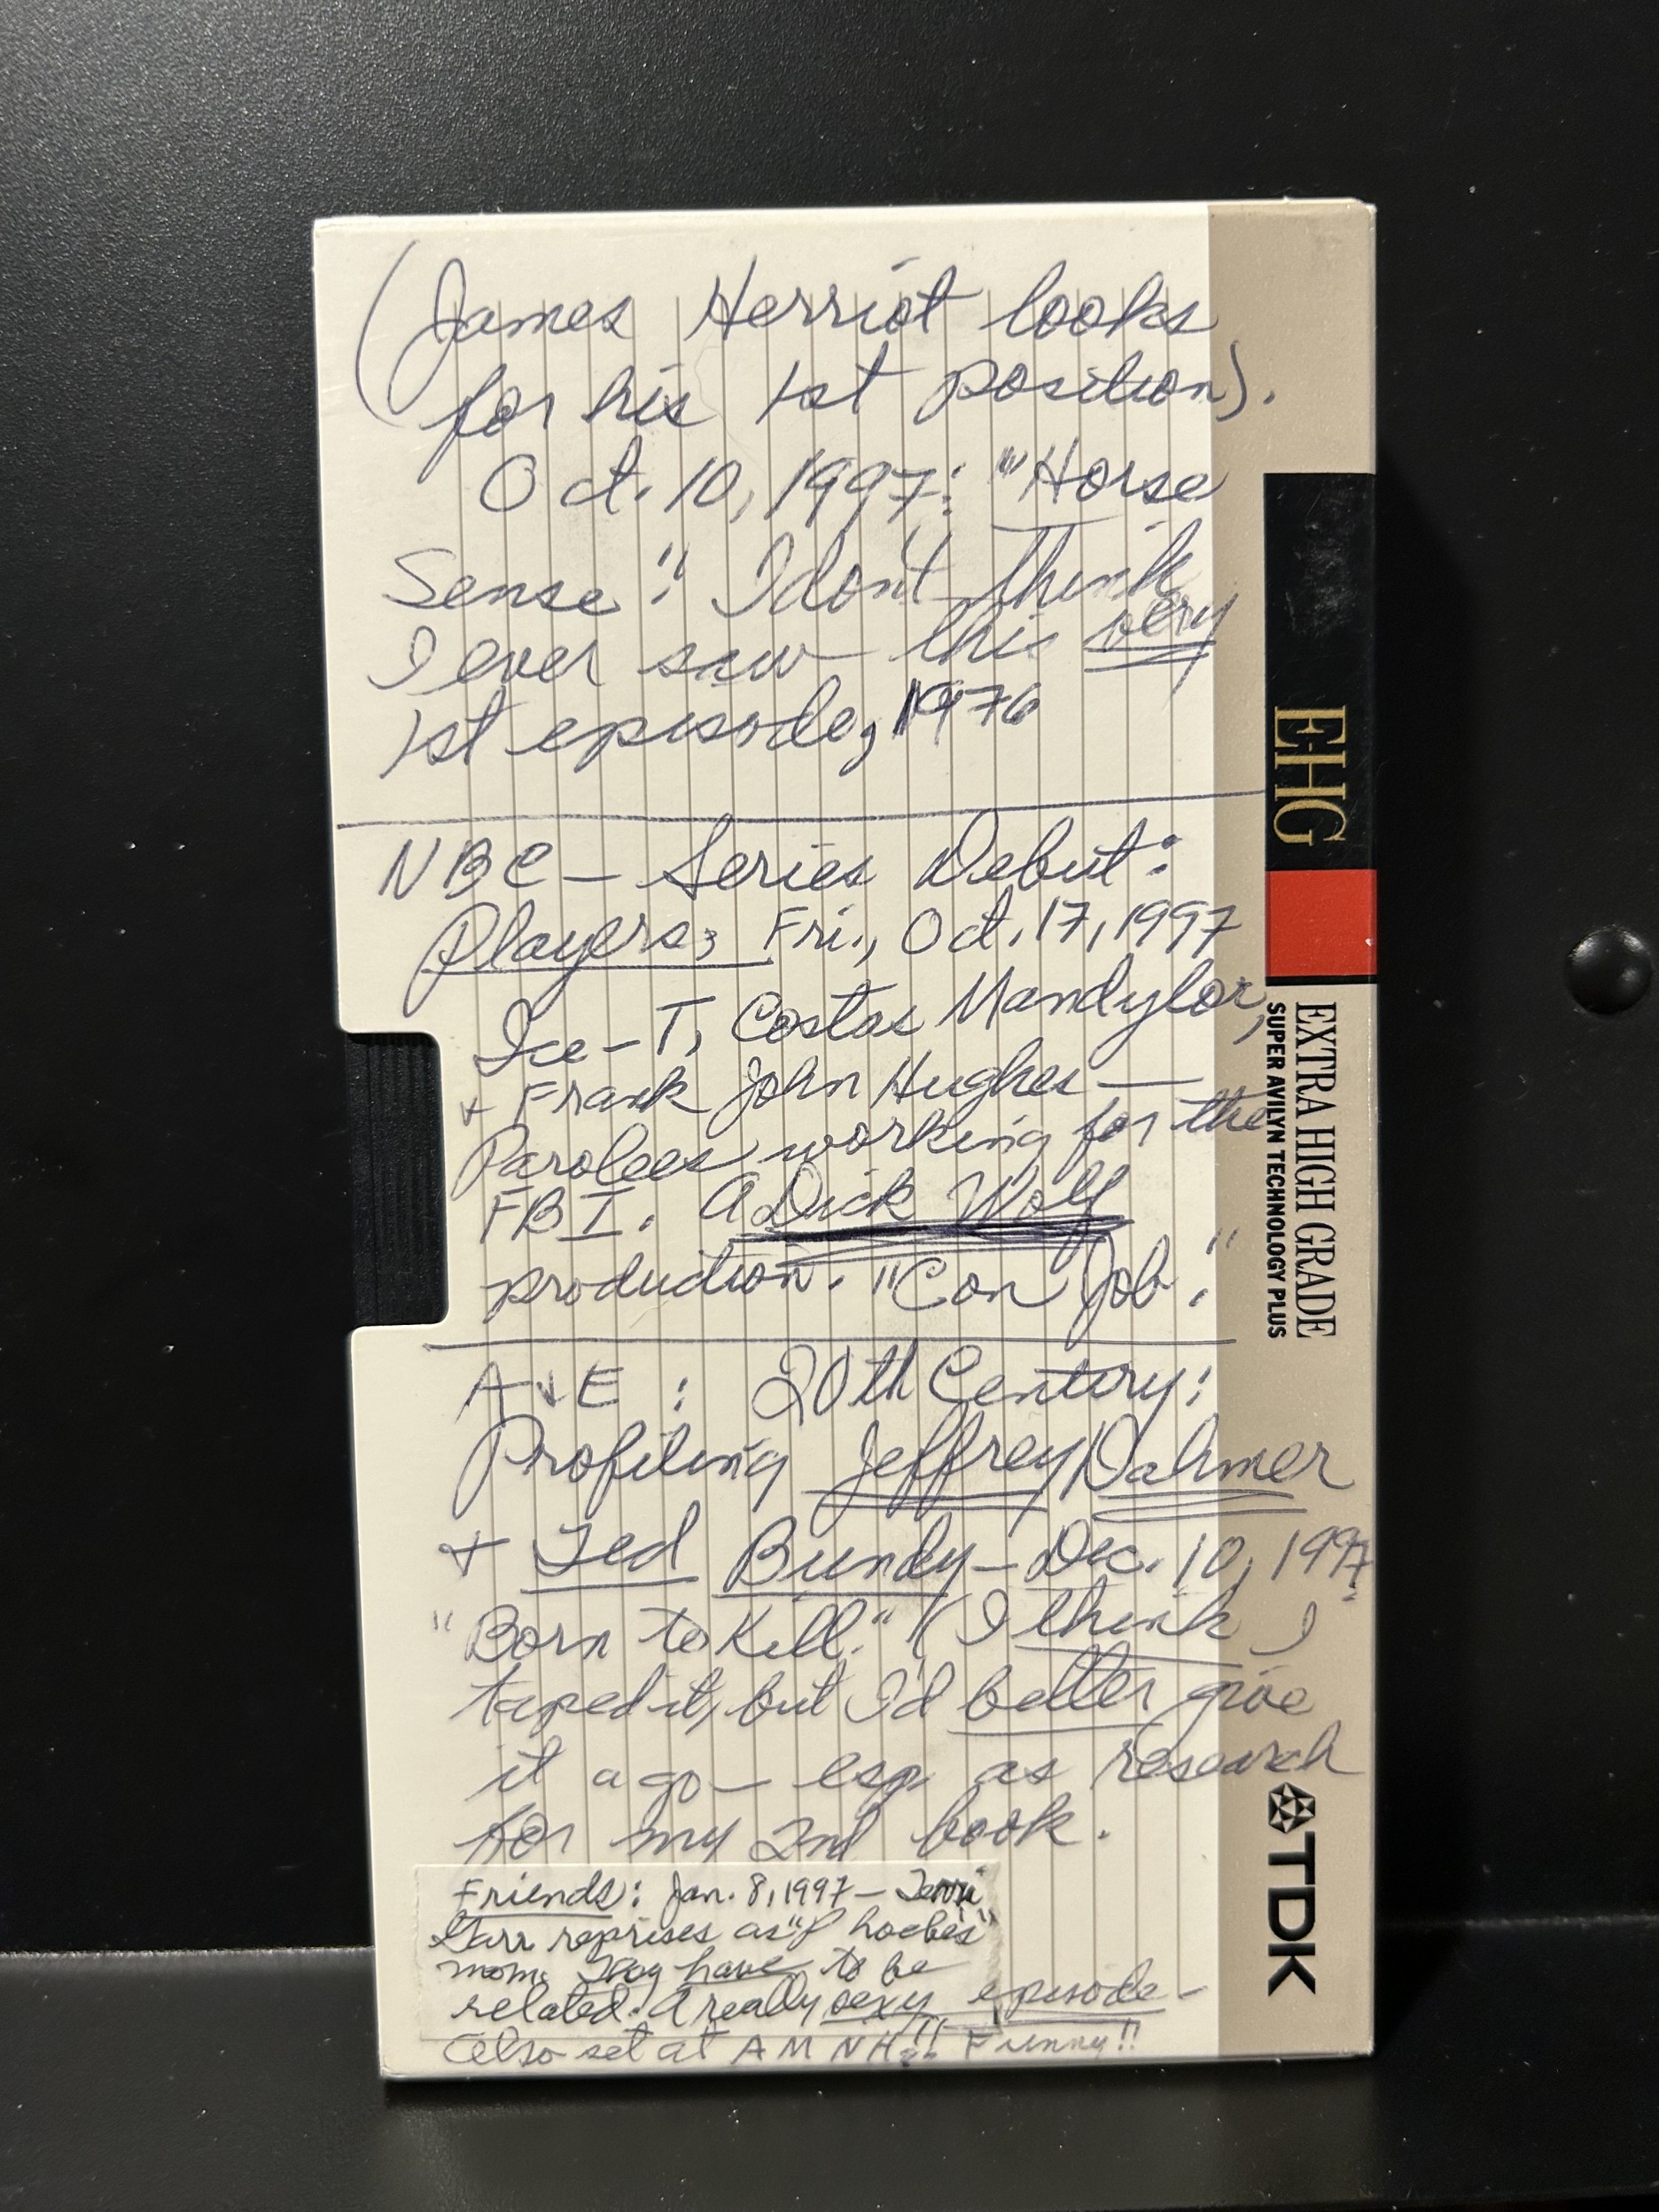 (James Herriot looks
for his 1st position).
Oct. 10, 1997: "Horse
Sense". I don't think
I ever saw this very
1st episode, 1976
NBC – Series Debut:
Players; Fri., Oct. 17, 1997
Ice-T, Costas Mandylor,
+ Frank John Hughes —
Parolees working for the
FBI. A Dick Wolf
production. "Con Job."
A+E: 20th Century:
Profiling Jeffrey Dahmer
+ Ted Bundy – Dec. 10, 1997
"Born to Kill." (I think I
taped it, but I'd better give
it a go – esp as research
for my 2nd book.
Friends: Jan. 8, 1997 – Terri
Garr reprises as "Phoebe's"
mom. They have to be
related! A really sexy episode –
Also set at AMNH!! Funny!!
EHG
EXTRA HIGH GRADE
SUPER AVILYN TECHNOLOGY PLUS
TDK